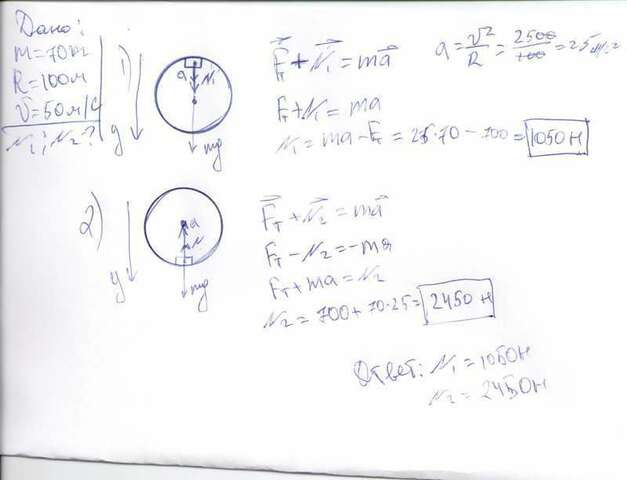 Дано:
m = 70 кг
R = 100 м
V = 50 м/с
N₁; N₂ ?
1)
y
a
N₁
mg
F⃗т + N⃗₁ = ma⃗
a = V²/R = 2500/100 = 25 м/с²
Fт + N₁ = ma
N₁ = ma - Fт = 25·70 - 700 = 1050 Н
2)
y
a
N
mg
F⃗т + N⃗₂ = ma⃗
Fт - N₂ = -ma
Fт + ma = N₂
N₂ = 700 + 70·25 = 2450 Н
Ответ: N₁ = 1050 Н
N₂ = 2450 Н